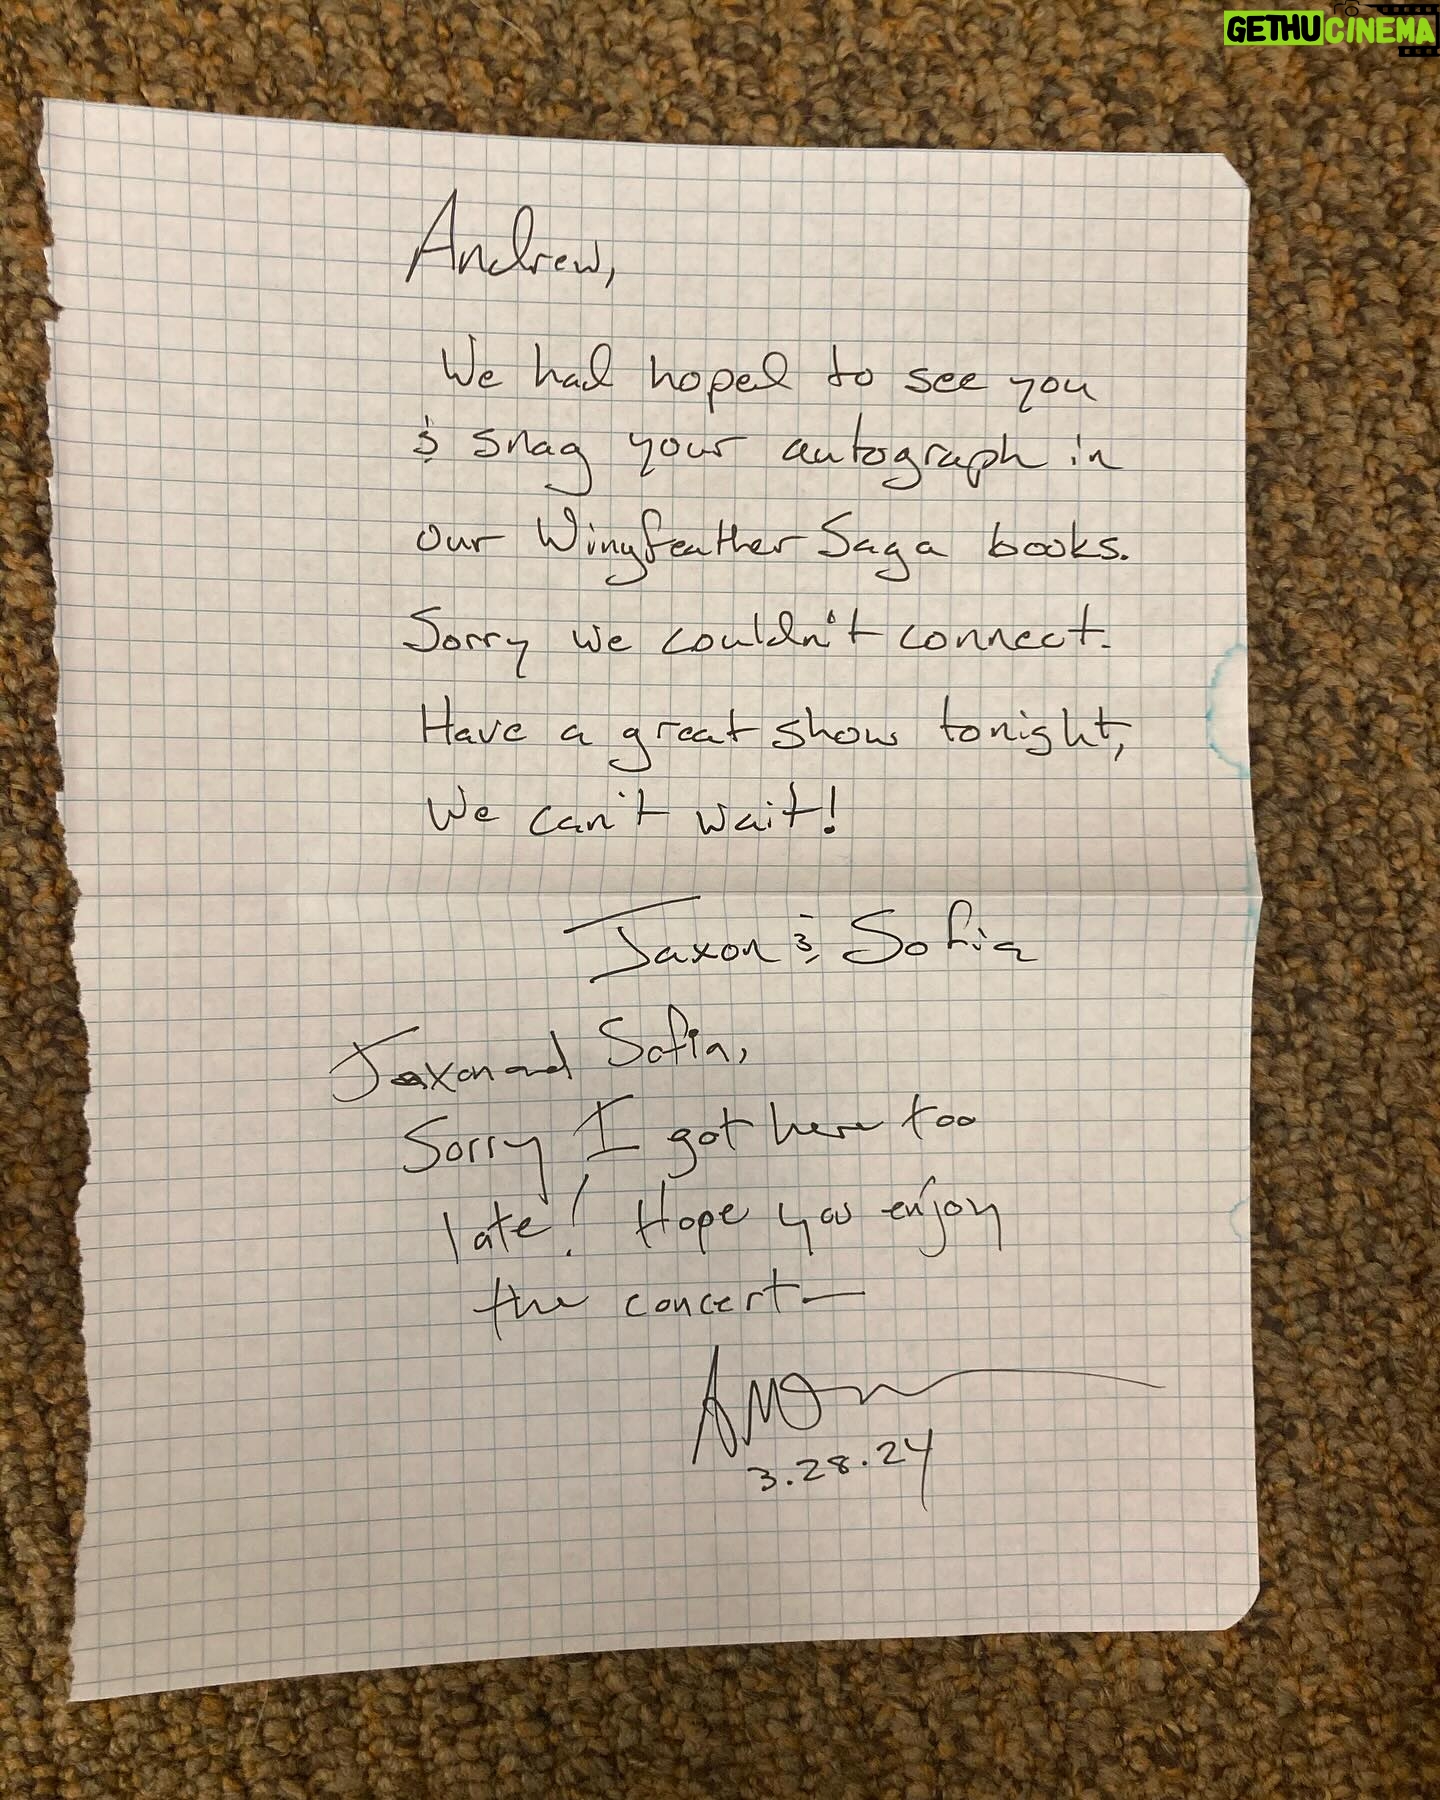 GETHUCINEMA
Andrew,
We had hoped to see you
& snag your autograph in
our Wingfeather Saga books.
Sorry we couldn't connect.
Have a great show tonight,
We can't wait!
Jaxon & Sofia
Jaxon and Sofia,
Sorry I got here too
late! Hope you enjoy
the concert—
3.28.24